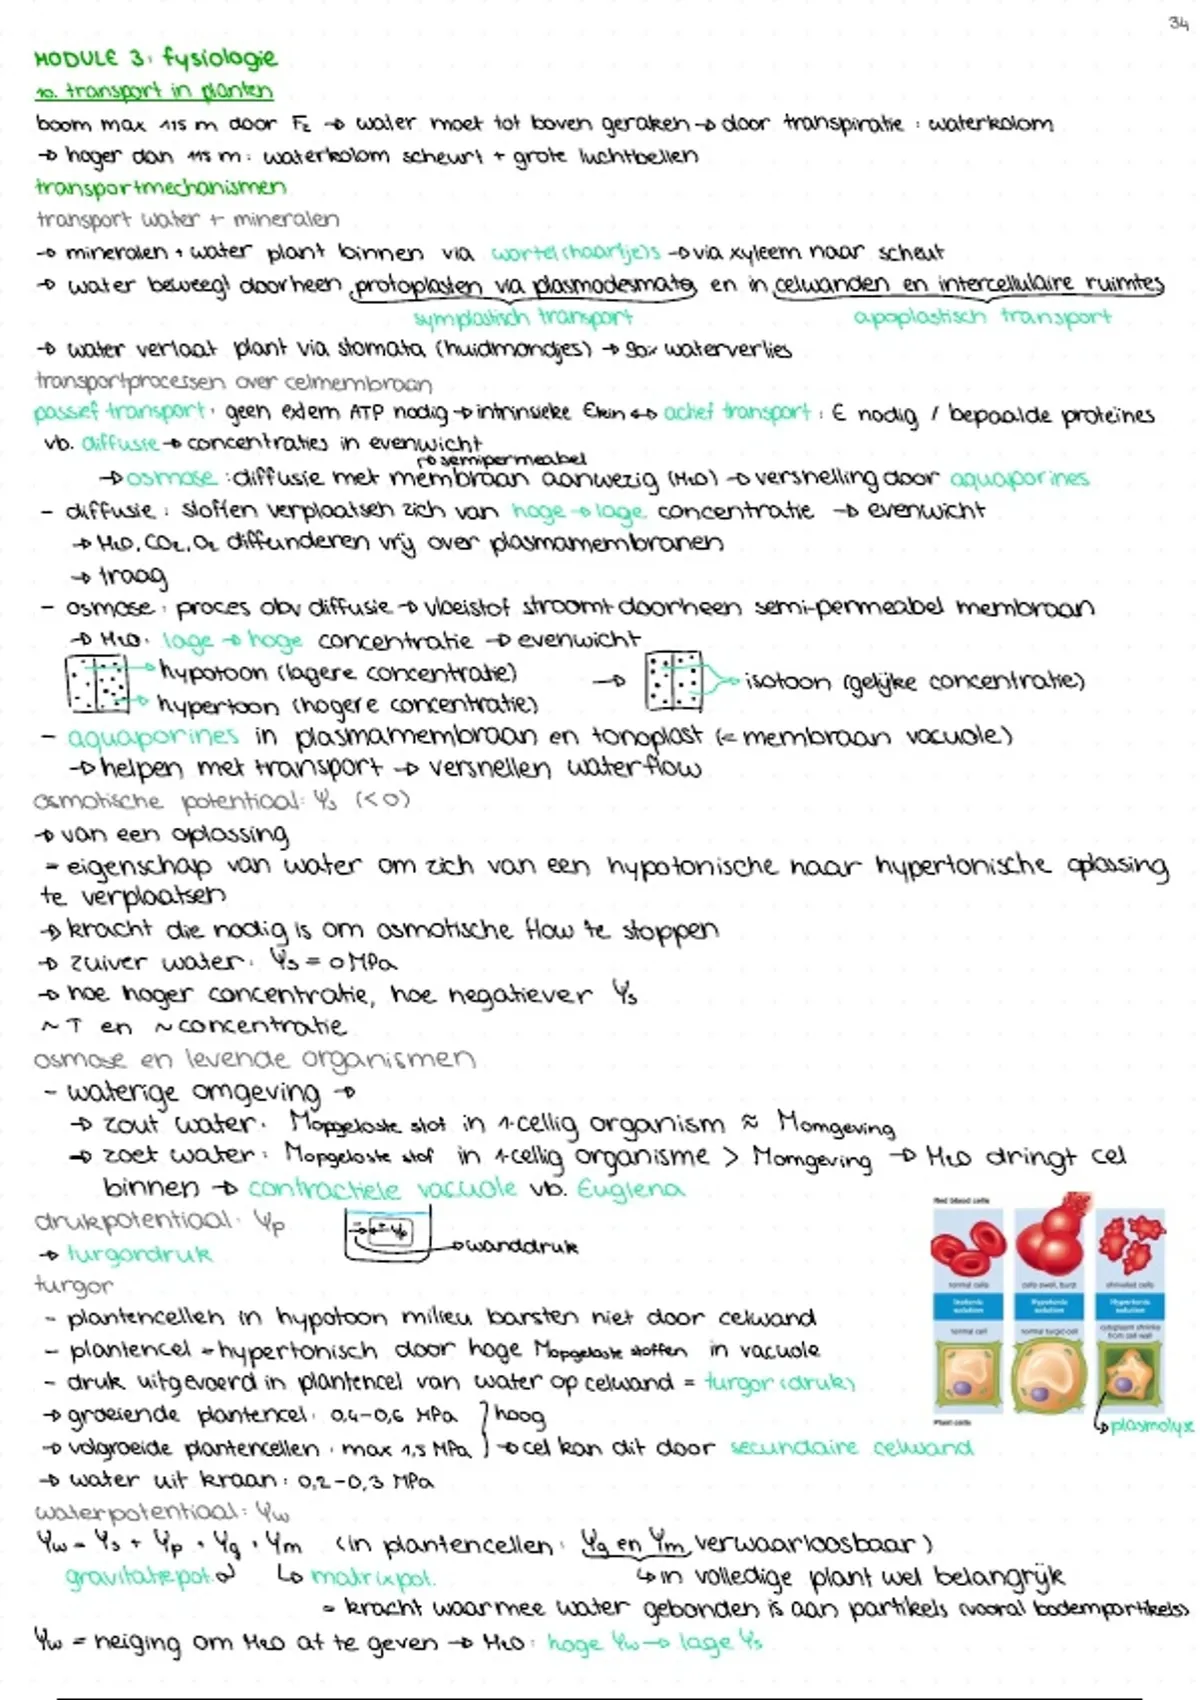 34
MODULE 3: fysiologie
10. transport in planten
boom max 115 m door Fz → water moet tot boven geraken → door transpiratie: waterkolom
→ hoger dan 115 m: waterkolom scheurt + grote luchtbellen
transportmechanismen
transport water + mineralen
→ mineralen + water plant binnen via wortel(haartje)s → via xyleem naar scheut
→ water beweegt doorheen protoplasten via plasmodesmata en in celwanden en intercellulaire ruimtes
symplastisch transport apoplastisch transport
→ water verlaat plant via stomata (huidmondjes) → 90% waterverlies
transportprocessen over celmembraan
passief transport: geen extern ATP nodig → intrinsieke Ekin ↔ actief transport: E nodig / bepaalde proteïnes
vb. diffusie → concentraties in evenwicht
→ semipermeabel
→ osmose: diffusie met membraan aanwezig (H2O) → versnelling door aquaporines
- diffusie: stoffen verplaatsen zich van hoge → lage concentratie → evenwicht
→ H2O, CO2, O2 diffunderen vrij over plasmamembranen
→ traag
- osmose: proces obv diffusie → vloeistof stroomt doorheen semi-permeabel membraan
→ H2O: lage → hoge concentratie → evenwicht
hypotoon (lagere concentratie)
→ isotoon (gelijke concentratie)
hypertoon (hogere concentratie)
- aquaporines in plasmamembraan en tonoplast (= membraan vacuole)
→ helpen met transport → versnellen waterflow
osmotische potentiaal: Ψs (<0)
→ van een oplossing
= eigenschap van water om zich van een hypotonische naar hypertonische oplossing
te verplaatsen
→ kracht die nodig is om osmotische flow te stoppen
→ zuiver water: Ψs = 0 MPa
→ hoe hoger concentratie, hoe negatiever Ψs
~ T en ~ concentratie
osmose en levende organismen
- waterige omgeving →
→ zout water: Mopgeloste stof in 1-cellig organism ≈ Momgeving
→ zoet water: Mopgeloste stof in 1-cellig organisme > Momgeving → H2O dringt cel
binnen → contractiele vacuole vb. Euglena
drukpotentiaal: Ψp
→ wanddruk
→ turgordruk
turgor
- plantencellen in hypotoon milieu barsten niet door celwand
- plantencel = hypertonisch door hoge Mopgeloste stoffen in vacuole
- druk uitgevoerd in plantencel van water op celwand = turgor(druk)
→ groeiende plantencel: 0,4-0,6 MPa } hoog
→ volgroeide plantencellen: max 1,5 MPa } → cel kan dit door secundaire celwand
→ water uit kraan: 0,2-0,3 MPa
Red blood cells
normal cells cells swell, burst shriveled cells
Isotonic solution Hypotonic solution Hypertonic solution
normal cell normal turgid cell cytoplasm shrinks from cell wall
Plant cells
→ plasmolyse
waterpotentiaal: Ψw
Ψw = Ψs + Ψp + Ψg + Ψm (in plantencellen: Ψg en Ψm verwaarloosbaar)
gravitatiepot. → matrixpot. → in volledige plant wel belangrijk
= kracht waarmee water gebonden is aan partikels (vooral bodempartikels)
Ψw = neiging om H2O af te geven → H2O: hoge Ψw → lage Ψs